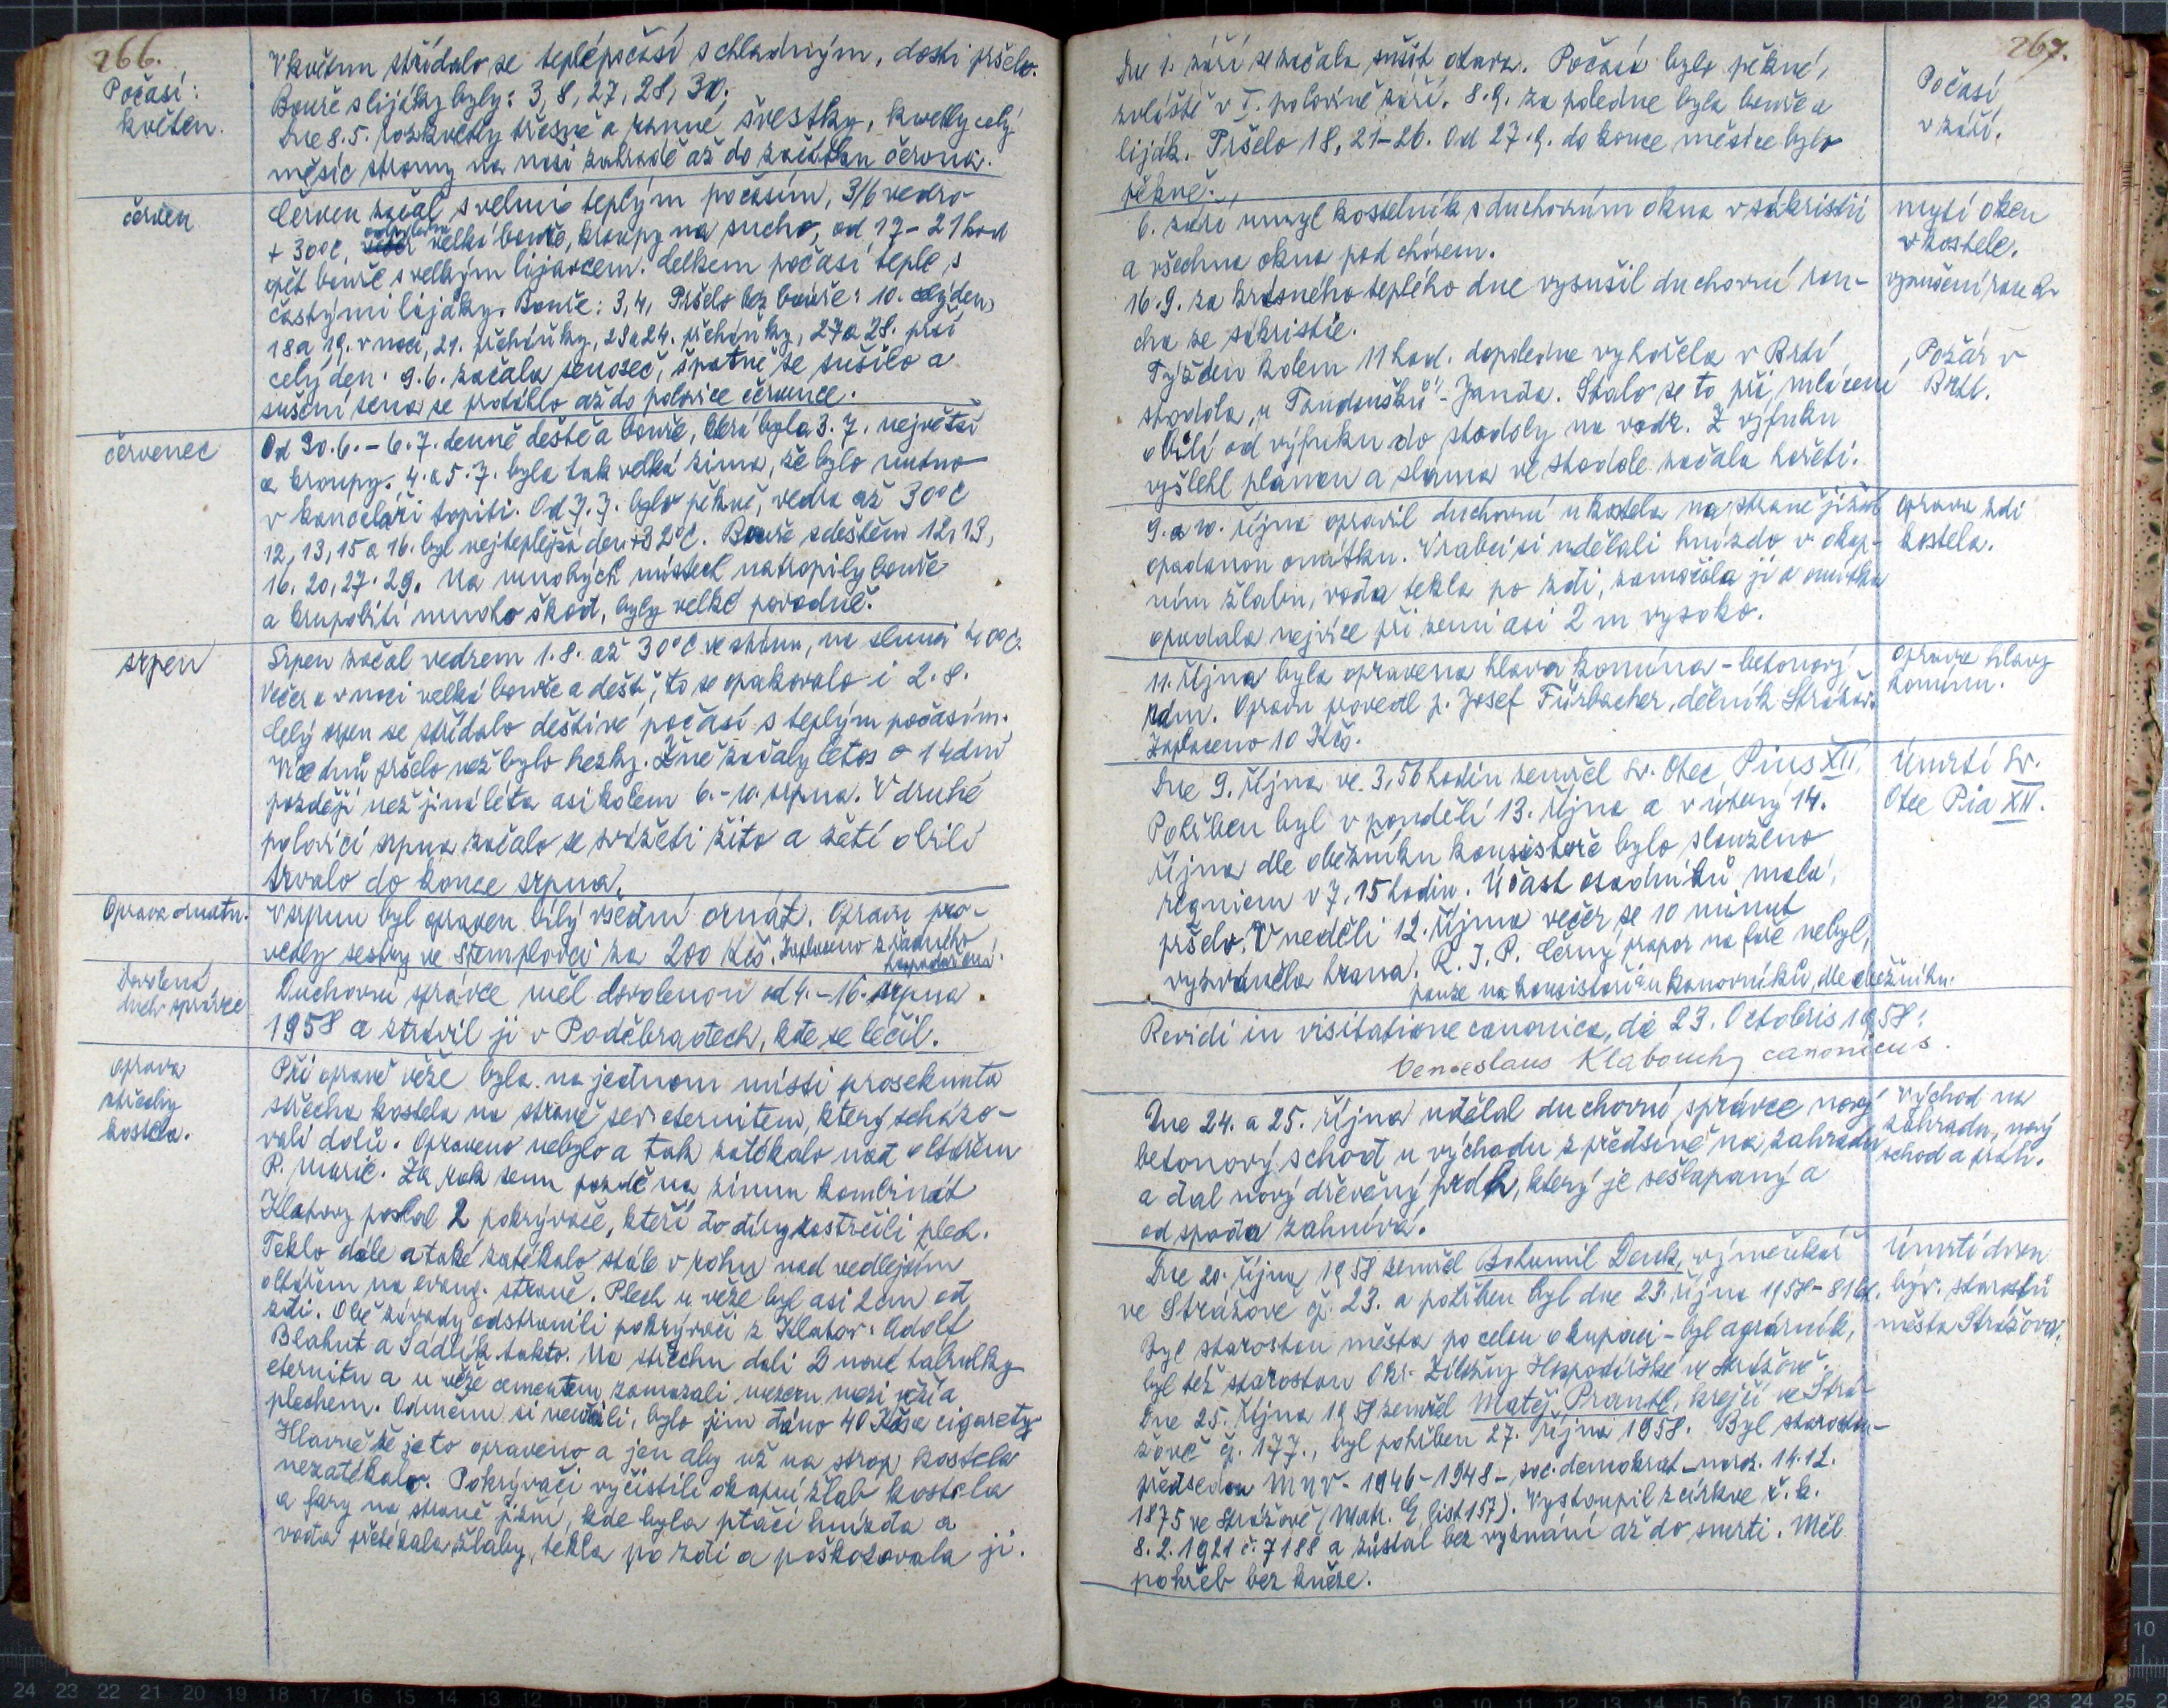 266.
Počasí:
květen.
V květnu střídalo se teplé počasí s chladným, dosti pršelo.
Bouře s lijáky byly: 3, 8, 27, 28, 30.
Dne 8.5. rozkvetly třešně a ranné švestky, kvetly celý
měsíc stromy na naší zahradě až do začátku června.
červen
Červen začal s velmi teplým počasím, 3/6 vedro
+ 30°C, odpoledne velká bouře, kroupy na sucho, od 17-21 hod
opět bouře s velkým lijavcem. Celkem počasí teplé, s
častými lijáky. Bouře: 3, 4, Pršelo bez bouře: 10. celý den,
18 a 19. v noci, 21. přeháňky, 23 a 24. přeháňky, 27 a 28. prší
celý den. 9.6. začala senoseč, špatně se sušilo a
sušení sena se protáhlo až do polovice července.
červenec
Od 30.6.-6.7. denně deště a bouře, která byla 3.7. největší
a kroupy. 4. a 5.7. byla tak velká zima, že bylo nutno
v kanceláři topiti. Od 7.7. bylo pěkně, vedra až 30°C
12, 13, 15 a 16. byl nejteplejší den +32°C. Bouře s deštěm 12, 13,
16, 20, 27. 29. Na mnohých místech natropily bouře
a krupobití mnoho škod, byly velké povodně.
srpen
Srpen začal vedrem 1.8. až 30°C ve stínu, na slunci 40°C.
Večer a v noci velká bouře a déšť, to se opakovalo i 2.8.
Celý srpen se střídalo deštivé počasí s teplým počasím.
Více dnů pršelo než bylo hezky. Žně začaly letos o 14 dní
později než jiná léta asi kolem 6.-10. srpna. V druhé
polovici srpna začalo se svážeti žito a žetí obilí
trvalo do konce srpna.
Oprava ornátu.
V srpnu byl opraven bílý všední ornát. Opravu pro-
vedly sestry ve Štemplovci za 200 Kčs. Zaplaceno z řádného
hospodaření.
Dovolená
duch. správce
Duchovní správce měl dovolenou od 4.-16. srpna
1958 a strávil ji v Poděbradech, kde se léčil.
oprava
střechy
kostela.
Při opravě věže byla na jednom místě proseknuta
střecha kostela na straně sev. eternitem, který scházo-
vali dolů. Opraveno nebylo a tak zatékalo nad oltářem
P. Marie. Za rok jenu pozdě na zimu kombinát
Klatovy poslal 2 pokrývače, kteří do díry zastrčili plech.
Teklo dále a také zatékalo stále v rohu nad vedlejším
oltářem na evang. straně. Plech u věže byl asi 2 cm od
zdi. Obě závady odstranili pokrývači z Klatov: Adolf
Blahut a Sádlík takto. Na střechu dali 2 nové tabulky
eternitu a u věže cementem zamazali mezeru mezi věží a
plechem. Odměnu si neúčtovali, bylo jim dáno 40 Kčs a cigarety.
Hlavně že je to opraveno a jen aby už na strop kostela
nezatékalo. Pokrývači vyčistili okapní žlab kostela
a fary na straně jižní, kde byla ptačí hnízda a
voda přetékala žlaby, tekla po zdi a poškozovala ji.
267.
Počasí
v září.
Dne 1. září se začala sušit otava. Počasí bylo pěkné,
zvláště v I. polovině září. 8.9. za poledne byla bouře a
liják. Pršelo 18, 21-26. Od 27.9. do konce měsíce bylo
pěkně.
mytí oken
v kostele.
6. září umyl kostelník s duchovním okna v sakristii
a všechna okna pod chórem.
vysušení rouch
16.9. za krásného teplého dne vysušil duchovní rou-
cha ze sakristie.
Požár v
Brtí.
Týž den kolem 11 hod. dopoledne vyhořela v Brtí
stodola „u Tandoušků" - Janda. Stalo se to při mlácení
obilí od výfuku do stodoly na vodr. Z výfuku
vyšlehl plamen a sláma ve stodole začala hořeti.
oprava zdi
kostela.
9. a 10. října opravil duchovní u kostela na straně jižní
opadanou omítku. Vrabci si udělali hnízdo v okap-
ním žlabu, voda tekla po zdi, zamočila ji a omítka
opadala nejvíce při zemi asi 2 m vysoko.
oprava hlavy
komínu.
11. října byla opravena hlava komína - betonový
rám. Opravu provedl p. Josef Fürbacher, dělník Strážov.
Zaplaceno 10 Kčs.
Úmrtí sv.
Otce Pia XII.
Dne 9. října ve 3,56 hodin zemřel sv. Otec Pius XII.
Pohřben byl v pondělí 13. října a v úterý 14.
října dle oběžníku konsistoře bylo slouženo
requiem v 7,15 hodin. Účast osadníků malá,
pršelo. V neděli 12. října večer se 10 minut
vyzváněla hrana. R. I. P. Černý prapor na faře nebyl,
pouze na konsistoři a u kanovníků, dle oběžníku.
Revidi in visitatione canonica, die 23. Octobris 1958:
Venceslaus Klabouch, canonicus.
východ na
zahradu, nový
schod a práh.
Dne 24. a 25. října udělal duchovní správce nový
betonový schod u východu z předsíně na zahradu
a dal nový dřevěný práh, který je sešlapaný a
od spoda zahnívá.
Úmrtí dvou
býv. starostů
města Strážova.
Dne 20. října 1958 zemřel Bohumil Denk, výměnkář
ve Strážově čp. 23. a pohřben byl dne 23. října 1958 - 81 let.
Byl starostou města po celou okupaci - byl agrárník,
byl též starostou Okr. Záložny Hospodářské ve Strážově.
Dne 25. října 1958 zemřel Matěj Prantl, krejčí ve Strá-
žově čp. 177., byl pohřben 27. října 1958. Byl starostou-
předsedou MNV - 1946-1948 - soc. demokrat - naroz. 14.12.
1875 ve Strážově (Matr. G, list 157). Vystoupil z církve ř. k.
8.2.1921 č. 7188 a zůstal bez vyznání až do smrti. Měl
pohřeb bez kněze.